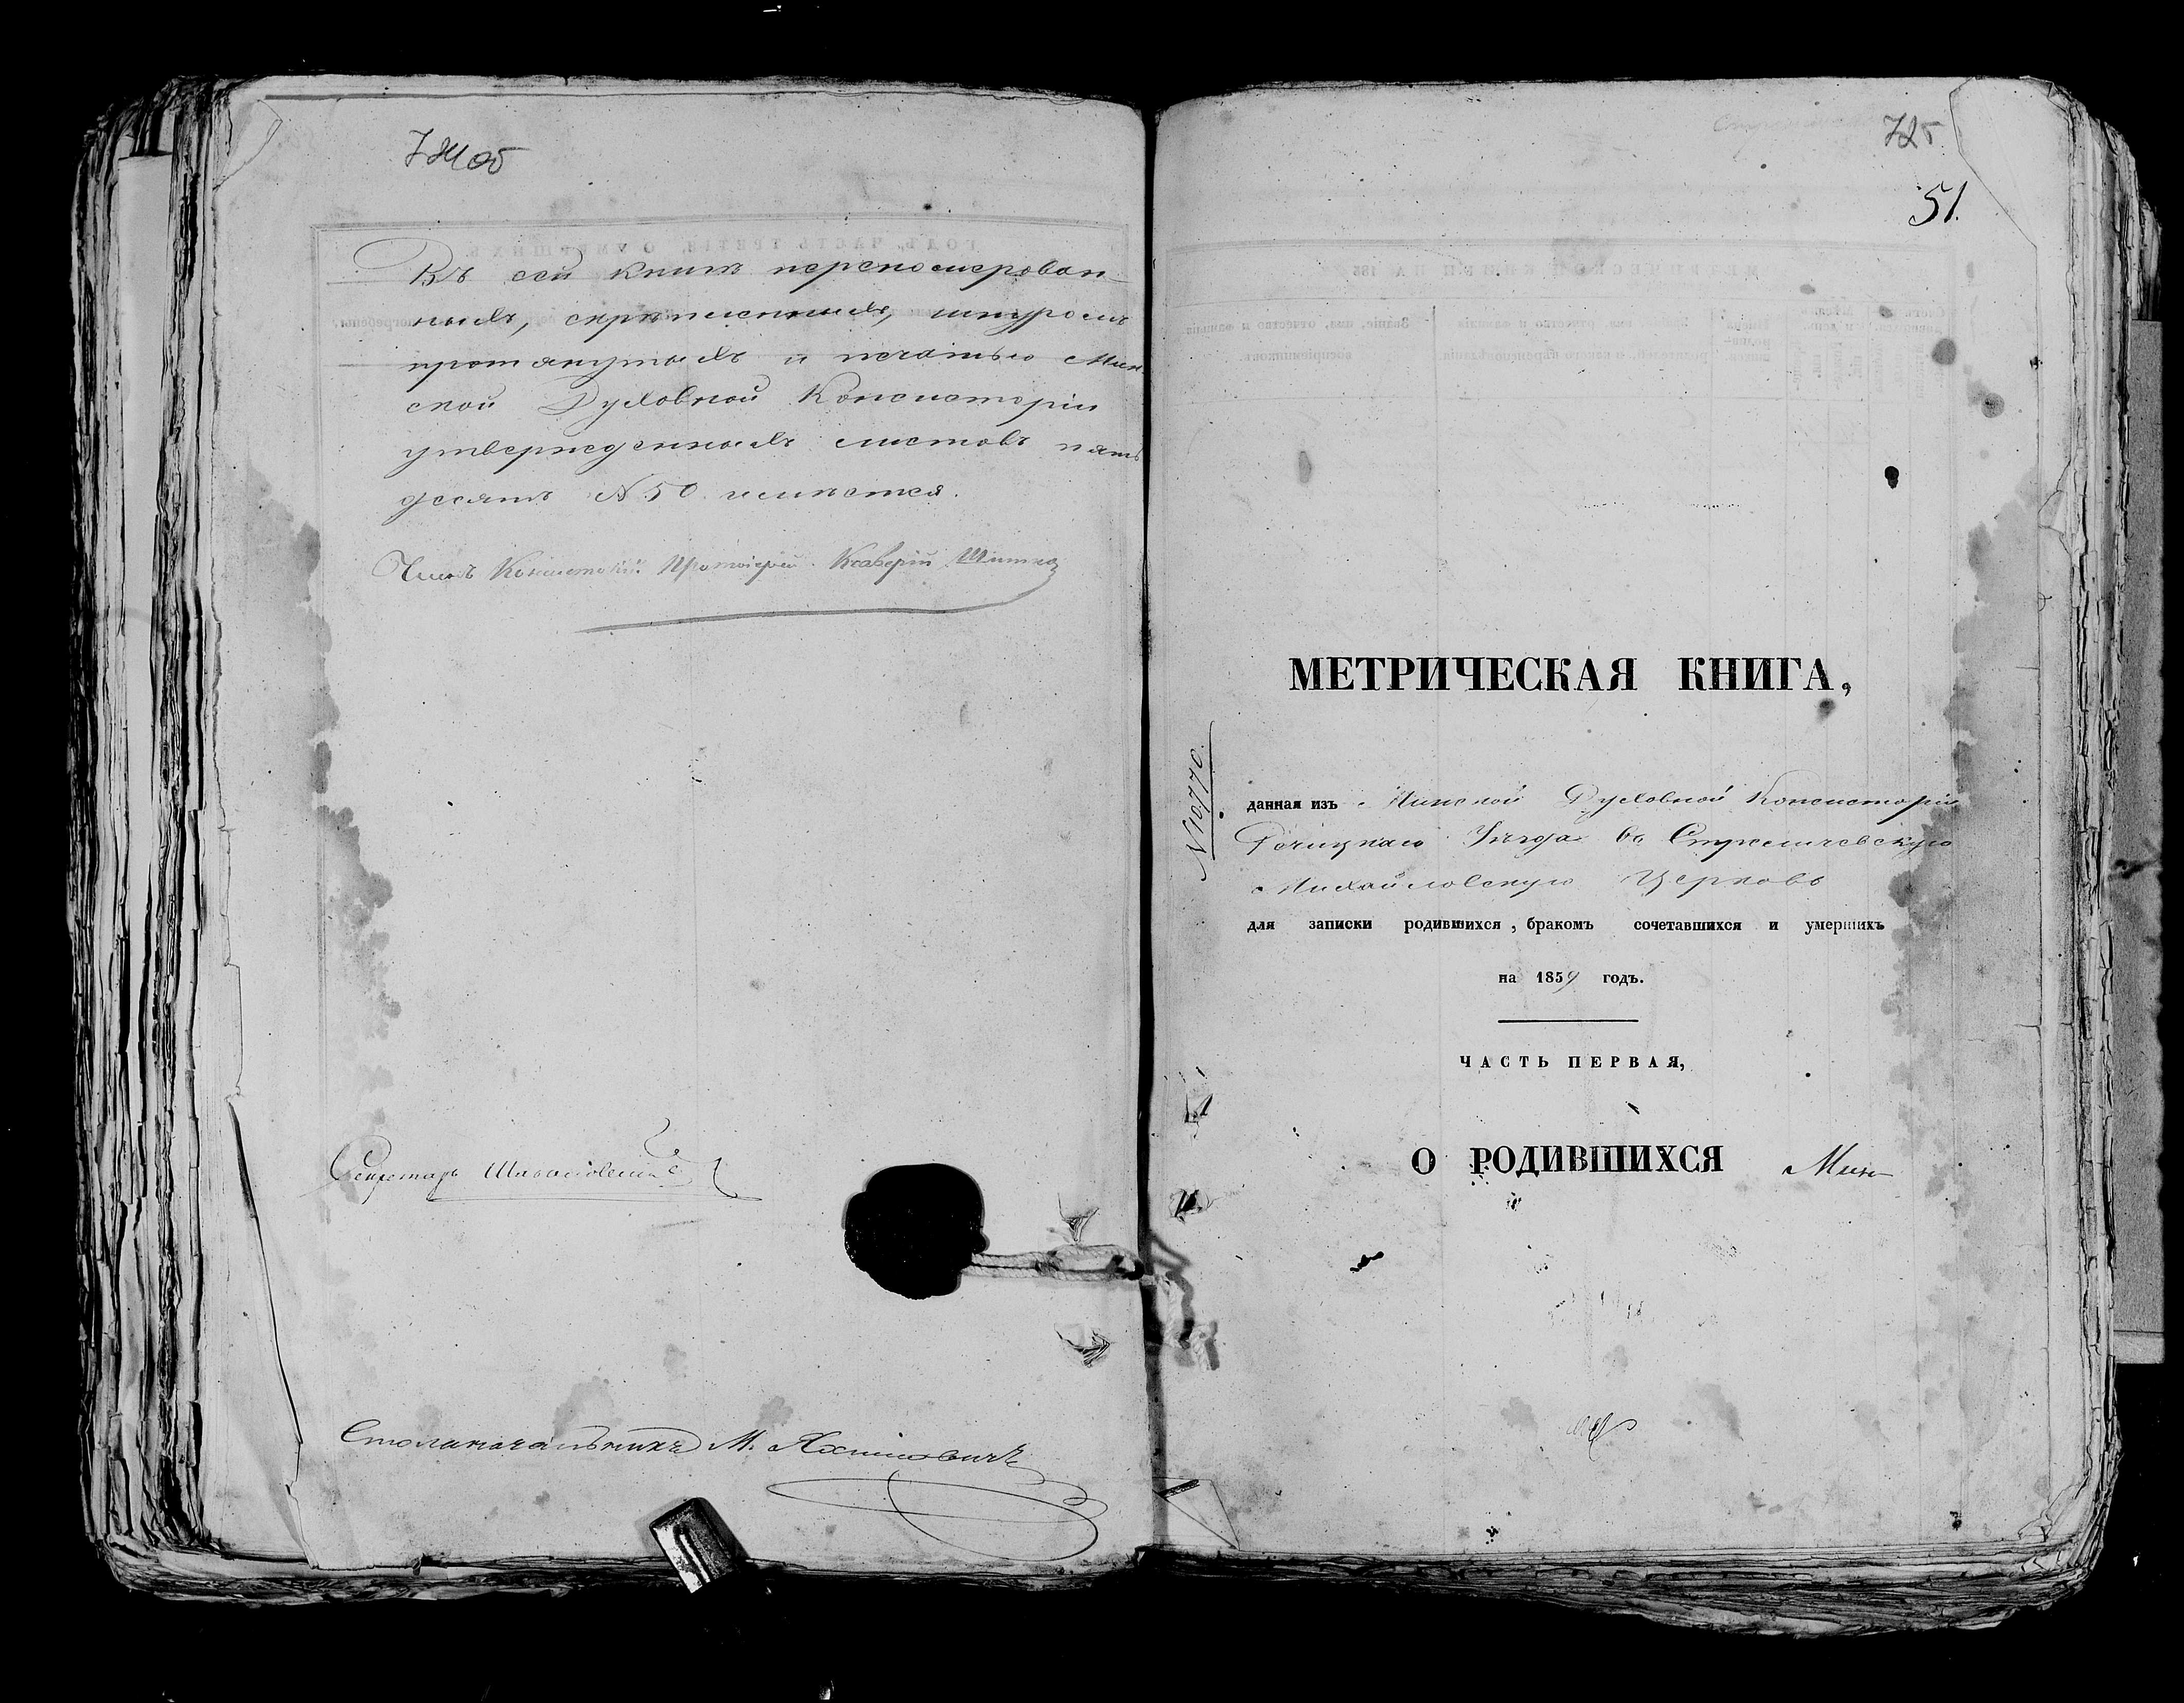 724об
Въ сей книгѣ перенумерован-
ныхъ, скрѣпленныхъ, шнуромъ
протянутыхъ и печатью Мин-
ской Духовной Консисторіи
утвержденныхъ листовъ пять
десятъ N 50. имѣется.
Членъ Консисторіи Протоіерей Ксаверій
Секретарь
Столоначальникъ М.
725
51.
МЕТРИЧЕСКАЯ КНИГА,
N 10770.
данная изъ Минской Духовной Консисторіи
Рѣчицкаго Уѣзда въ Стреличевскую
Михайловскую Церковь
для записки родившихся, бракомъ сочетавшихся и умершихъ
на 1859 годъ.
ЧАСТЬ ПЕРВАЯ,
О РОДИВШИХСЯ Мин-